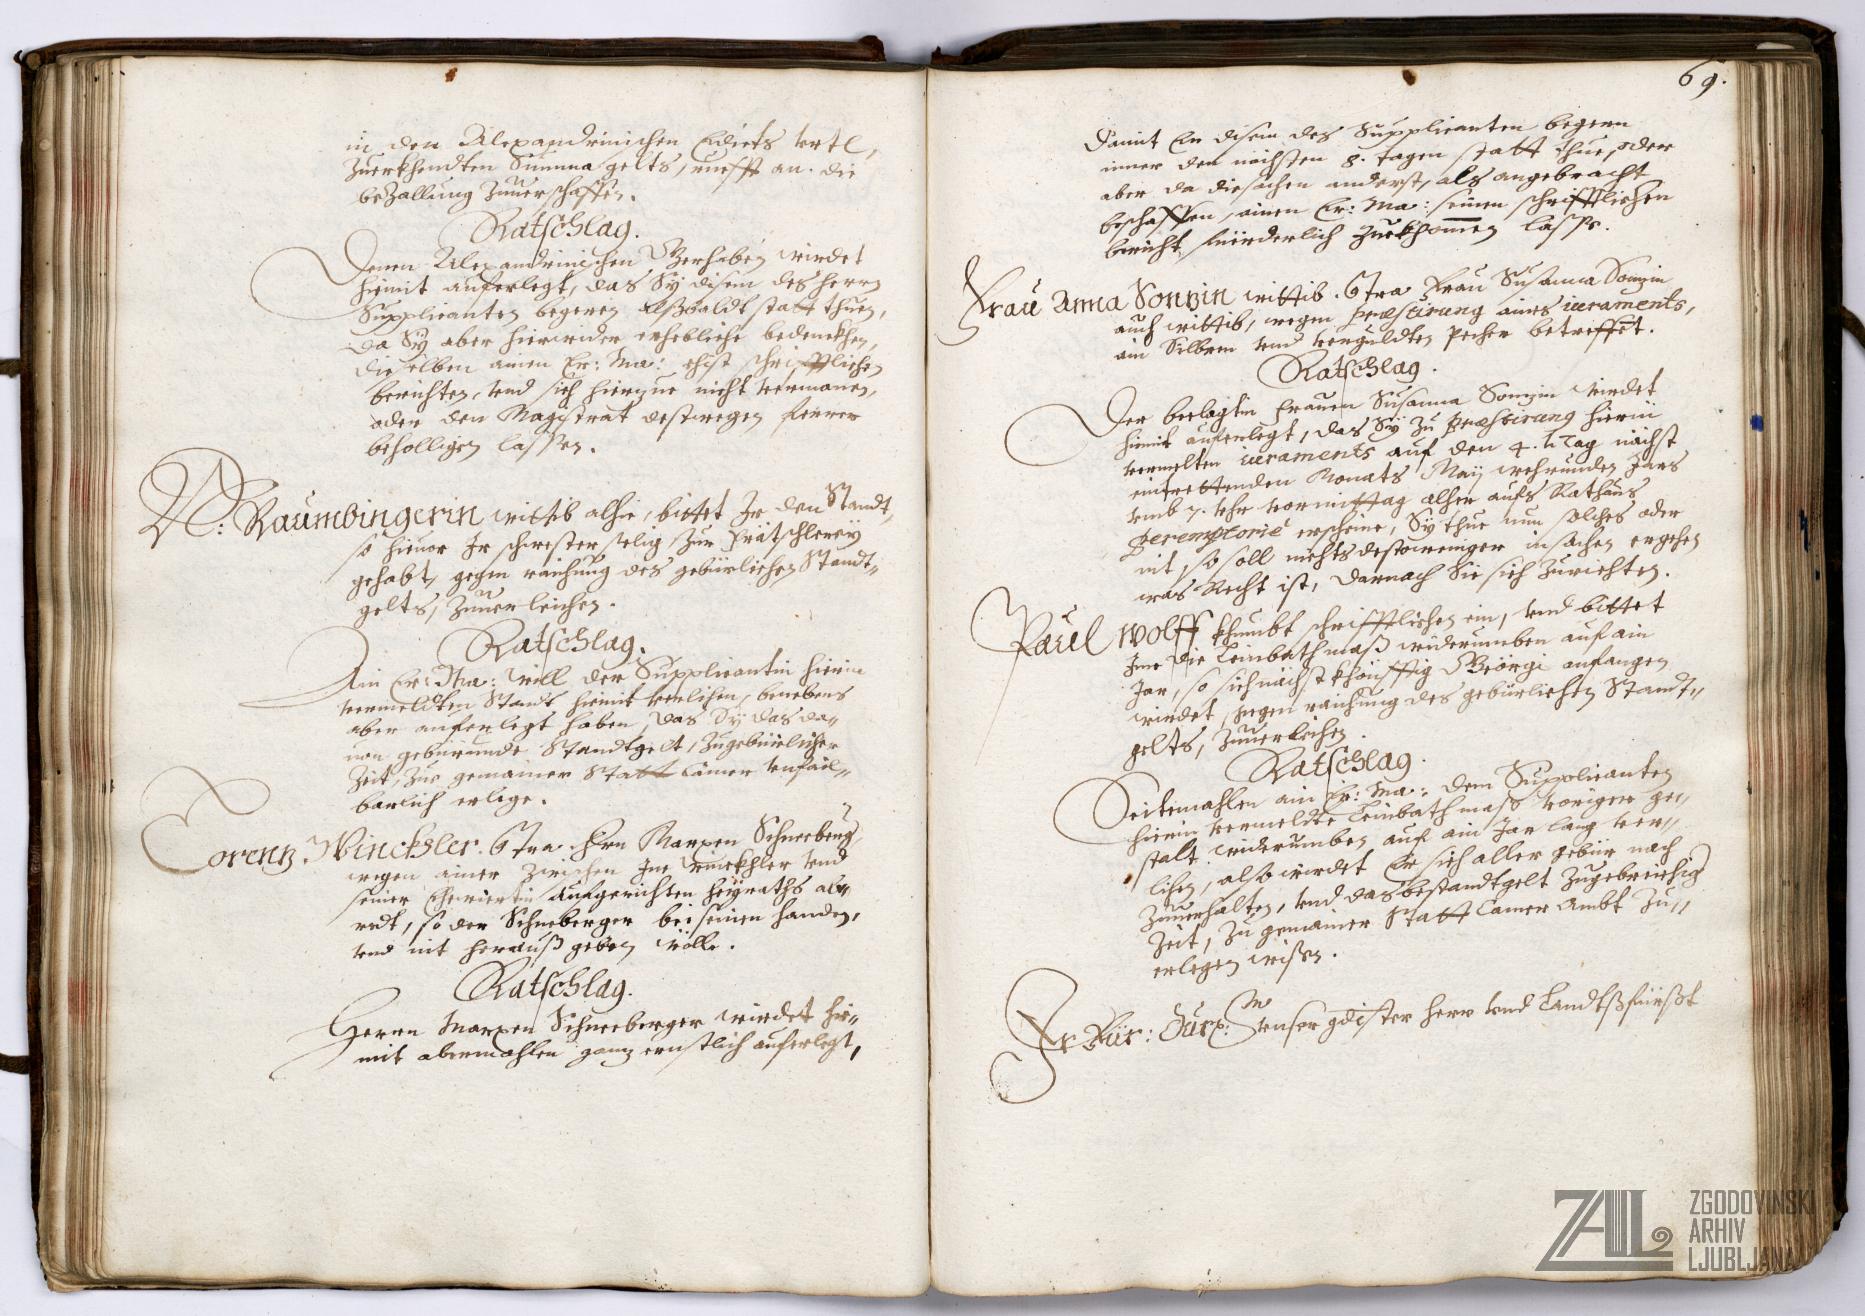 in den Alexandrinischen Edicts vrtl,
Zuerkhendten Summa gelts, an die
beZallung Zuuerschaffen.
Ratschlag.
Denen Alexandrinischen Gerhaben wirdet
hiemit auferlegt, das Sÿ disem des herrn
Supplicanten begeren alßbaldt statt thuen,
da Sÿ aber hierwider erhebliche bedenckhen,
dieselben ainen Er: Ma: ehist schrifftlichen
berichten, vnd sich hierzue nicht vermanen,
oder den Magistrat destwegen ferrer
beholligen lassen.
N: Raumbingerin wittib alhie, bittet Ir den Standt,
so hieuor Ir schwester selig Zur Frätschlereÿ
gehabt, gegen raichung des gebürlichen Standt-
gelts, Zuuerleichen.
Ratschlag.
Ain Er: Ma: will der Supplicantin hierin
vermeldten Standt hiemit verlichen, benebens
aber auferlegt haben, das Sÿ das da-
uon gebürunde Standtgelt, Zugebüerlicher
Zeit, Zur gemainer Statt Camer vnfail-
barlich erlege.
Lorenz Winckhler Ctra Hrn Marxen Schneeberg
wegen ainer Zwischen Ime Winckhler vnd
seiner Ehewiertin aufgerichten heÿraths ab-
redt, so der Schneberger bei seinen handen,
vnd nit herauß geben wölle.
Ratschlag.
Herrn Marxen Schneeberger wirdet hie-
mit abermahlen ganz ernstlich auferlegt,
69.
Damit Er disem des Supplicanten begern
inner den nächsten 8. tagen statt thue, oder
aber da die sachen anderst, als angebracht
beschaffen, ainen Er: Ma: seinen schrifftlichen
bericht fürderlich Zuekhomen lasse.
Frau Anna Sonzin wittib Ctra Frau Susanna Sonzin
auch wittib, wegen præstirung aines iuraments,
ain Silbren vnd verguldten Pecher betreffet.
Ratschlag.
Der beclagtin Frauen Susanna Sonzin wirdet
hiemit auferlegt, das Sÿ Zu præstirung hierin
vermelten iuraments auf den 4. Tag nächst
eintrettenden Monats Maÿ wehrunden Jars
vmb 7. Vhr vormittag alher aufs Rathaus
peremptoriè erscheine, Sÿ thue nun solches oder
nit, so soll nichtsdestoweniger in sachen ergehen
was Recht ist, darnach Sie sich Zurichten.
Paul Wolff khumbt schrifftlichen ein, vnd bittet
Ime die Leinbathmaß widerumben auf ain
Jar, so sich nächst khönfftig Geörgi anfangen
wirdet, gegen raichung des gebürlichen Standt-
gelts, Zuuerleichen.
Ratschlag.
Seitemahlen ain Er: Ma: dem Supplicanten
hierin vermeldte Leinbathmaß voriger ge-
stalt widerumben auf ain Jar lang ver-
lichen, also wirdet Er sich aller gebür nach
Zuuerhalten, vnd das bestandtgelt Zugebreichig
Zeit, Zu gemainer Statt Camer Ambt Zu-
erlegen wissen.
Ir Für: Dur: vnser gdister herr vnd Landtsfürst
ZAL
ZGODOVINSKI
ARHIV
LJUBLJANA